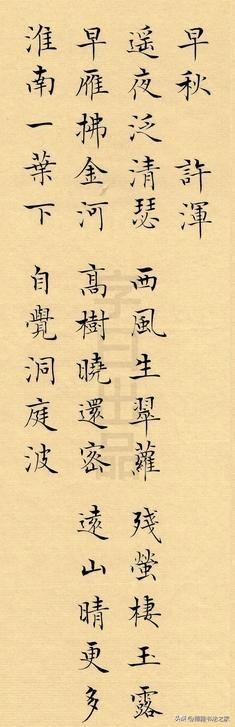 早秋 許渾
遥夜泛清瑟 西風生翠蘿 殘螢棲玉露
早雁拂金河 高樹曉還密 遠山晴更多
淮南一葉下 自覺洞庭波
出品
头条